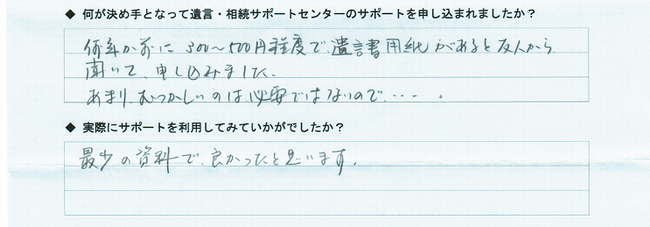 ◆ 何が決め手となって遺言・相続サポートセンターのサポートを申し込まれましたか？
何年か前に 300〜500円程度で、遺言書用紙があると友人から
聞いて、申し込みました。
あまり、むつかしいのは必要ではないので、‥‥。
◆ 実際にサポートを利用してみていかがでしたか？
最少の資料で、良かったと思います。